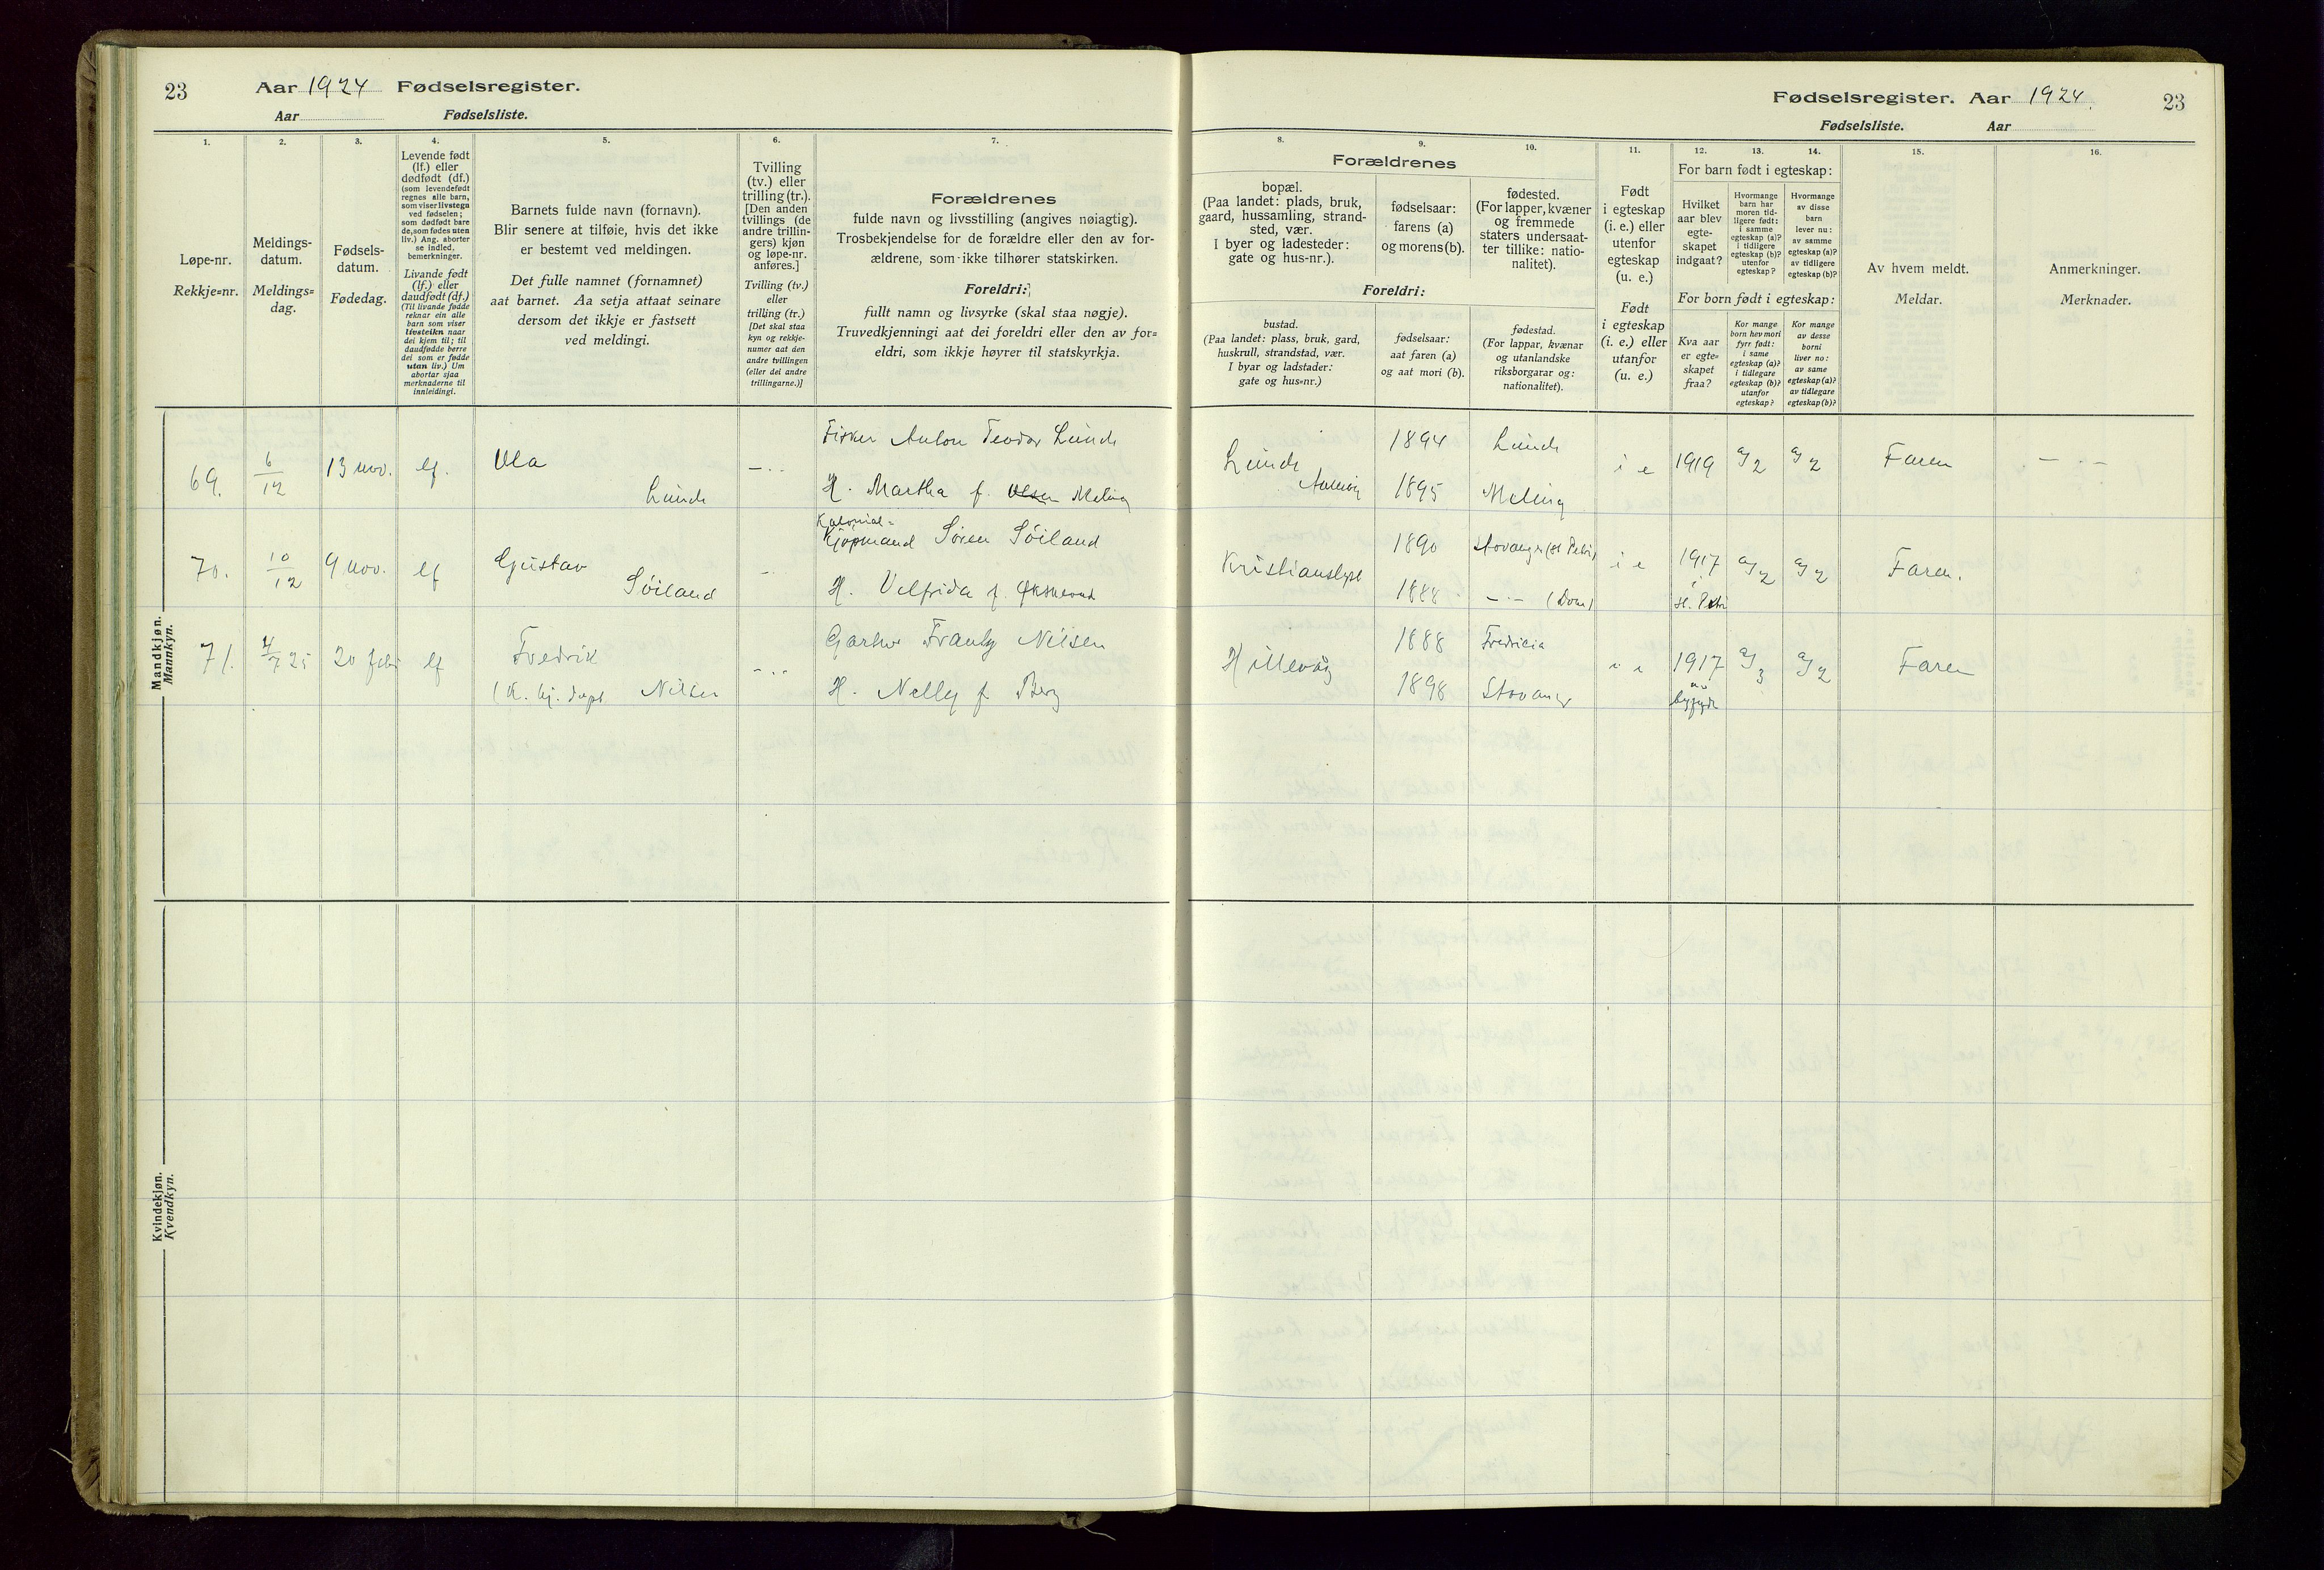 23
Aar 1924 Fødselsregister.
Aar Fødselsliste.
1.
2.
3.
4.
5.
6.
7.
Løpe-nr.
Rekkje=nr.
Meldings-
datum.
Meldings=
dag.
Fødsels-
datum.
Fødedag.
Levende født
(lf.) eller
dødfødt (df.)
(som levendefødt
regnes alle barn,
som viser livstegn
ved fødselen;
som dødfødt bare
de, som fødes uten
liv.) Ang. aborter
se indled.
bemerkninger.
Livande født
(lf.) eller
daudfødt (df.)
(Til livande fødde
reknar ein alle
barn som viser
livsteikn naar
dei kjem til; til
daudfødde berre
dei som er fødde
utan liv.) Um
abortar sjaa
merknaderne til
innleidingi.
Barnets fulde navn (fornavn).
Blir senere at tilføie, hvis det ikke
er bestemt ved meldingen.
Det fulle namnet (fornamnet)
aat barnet. Aa setja attaat seinare
dersom det ikkje er fastsett
ved meldingi.
Tvilling
(tv.) eller
trilling (tr.).
[Den anden
tvillings (de
andre trillin-
gers) kjøn
og løpe-nr.
anføres.]
Tvilling (tv.)
eller
trilling (tr.)
[Det skal staa
kyn og rekkje-
numer aat den
andre tvillingen
(eller dei andre
trillingarne.)]
Forældrenes
fulde navn og livsstilling (angives nøiagtig).
Trosbekjendelse for de forældre eller den av for-
ældrene, som ikke tilhører statskirken.
Foreldri:
fullt namn og livsyrke (skal staa nøgje).
Truvedkjenningi aat dei foreldri eller den av for=
eldri, som ikkje høyrer til statskyrkja.
Mandkjøn.
Mannkyn.
69. 6/12 13 nov. lf. Ola Lunde
Fisker Anton Teodor Lunde
H. Martha f. Olsen Meling
70. 10/12 9 nov. lf Gustav Søiland
Kolonial-
Kjøpmand Søren Søiland
H. Velfrida f.
71. 4/7 25 20 febr lf Fredrik Nilsen
Garver Frantz Nilsen
H. Nelly f. Berg
Kvindekjøn.
Kvendkyn.
Fødselsregister. Aar 1924. 23
Fødselsliste. Aar
8.
9.
10.
11.
12.
13.
14.
15.
16.
Forældrenes
bopæl.
(Paa landet: plads, bruk,
gaard, hussamling, strand-
sted, vær.
I byer og ladesteder:
gate og hus-nr.).
fødselsaar:
farens (a)
og morens (b).
fødested.
(For lapper, kvæner
og fremmede
staters undersaat-
ter tillike: natio-
nalitet).
Foreldri:
bustad.
(Paa landet: plass, bruk, gard,
huskrull, strandstad, vær.
I byar og ladstader:
gate og hus=nr.)
fødselsaar:
aat faren (a)
og aat mori (b).
fødestad.
(For lappar, kvænar
og utanlandske
riksborgarar og:
nationalitet).
Født
i egteskap
(i. e.) eller
utenfor
egteskap
(u. e.)
Født
i egteskap
(i. e.) eller
utanfor
(u. e.)
For barn født i egteskap:
Hvilket
aar blev
egte-
skapet
indgaat?
Hvormange
barn har
moren tid-
ligere født:
i samme
egteskap (a)?
i tidligere
egteskap (b)?
utenfor
egteskap?
Hvormange
av disse
barn
lever nu:
av samme
egteskap (a)?
av tidligere
egteskap (b)?
For born født i egteskap:
Kva aar
er egte=
skapet
fraa?
Kor mange
born hev mori
fyrr født:
i same
egteskap (a)?
i tidlegare
egteskap (b)?
utanfor
egteskap?
Kor mange
av desse
borni
liver no:
av same
egteskap (a)?
av tidlegare
egteskap (b)?
Av hvem meldt.
Meldar.
Anmerkninger.
Merknader.
Lunde 1894 Lunde i e 1919 a/2 a/2 Faren
1895 Meling
Kristianslyst 1890 Stavanger (St Petri) i e 1917 a/2 a/2 Faren.
1888 (Dom) i St. Petri
Hillevåg 1888 Fredricia i e 1917 a/3 a/2 Faren
1898 Stavanger